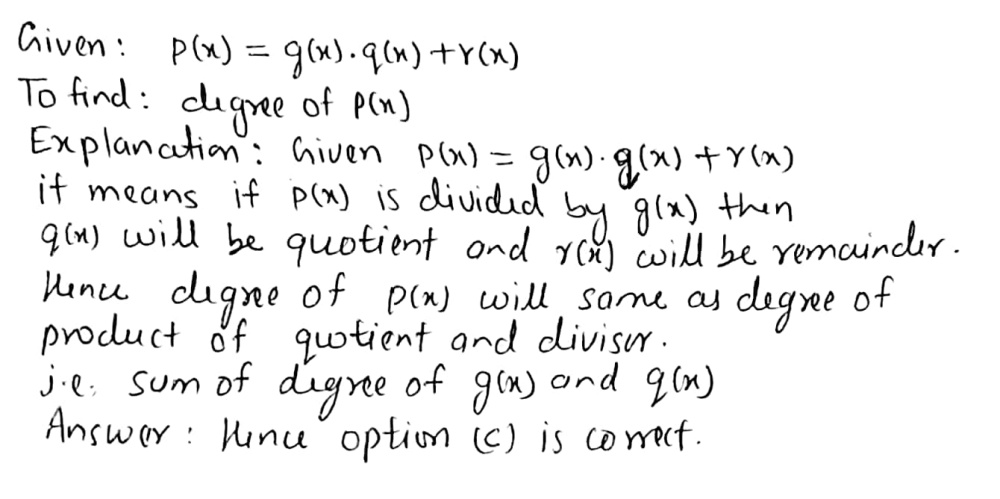 Given: P(x) = g(x).q(x) + r(x)
To find: degree of P(x)
Explanation: Given P(x) = g(x).q(x) + r(x)
it means if p(x) is divided by g(x) then
q(x) will be quotient and r(x) will be remainder.
Hence degree of p(x) will same as degree of
product of quotient and divisor.
i.e. sum of degree of g(x) and q(x)
Answer: Hence option (c) is correct.